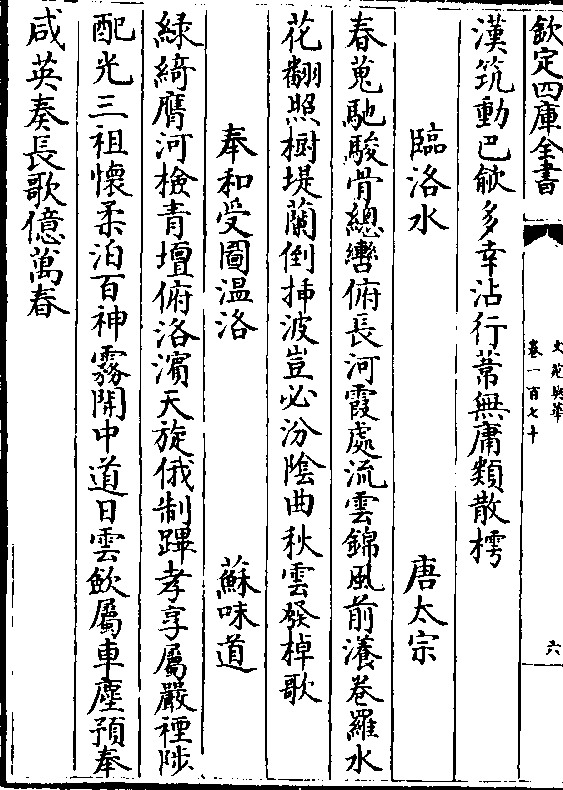 欽定四庫全書
文苑英華
卷一百七十
六
漢筑動巴歈多幸沾行葦無庸類散樗
臨洛水
唐太宗
春蒐馳駿骨總轡俯長河霞處流雲錦風前瀁卷羅水
花翻照樹堤蘭倒揷波豈必汾陰曲秋雲發棹歌
奉和受圖温洛
蘇味道
緑綺膺河檢青壇俯洛濱天旋俄制蹕孝享屬嚴禋陟
配光三祖懷柔洎百神霧開中道日雲歛屬車塵預奉
咸英奏長歌億萬春